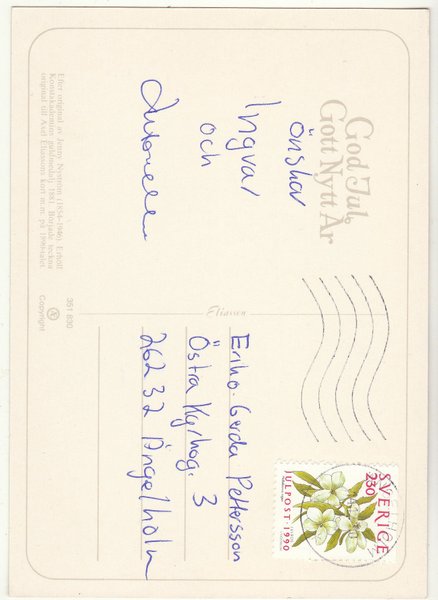 God Jul
Gott Nytt År
önskar
Ingvar
och
Efter original av Jenny Nyström (1854-1946). Erhöll
Konstakademins guldmedalj 1881. Började teckna
original till Axel Eliassons kort m.m. på 1890-talet.
351 830
Copyright
Eliasson
SVERIGE
230
JULPOST · 1990
Gerda Pettersson
Östra Kyrkog. 3
262 32 Ängelholm